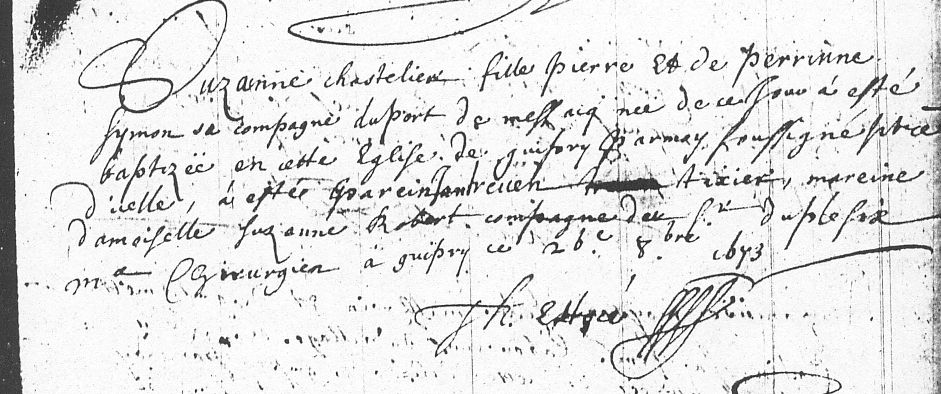 Suzanne chastelier fille pierre Et de perrinne
symon sa compagne du port de messacq nee de ce jour á esté
baptizeé en cette Eglise de guipry par moy soussigné
d'icelle, á estés parein tixier, mareine
damoiselle suzanne Robert compagne du Sr duplesix
me Chirurgien á guipry ce 26e 8bre 1673